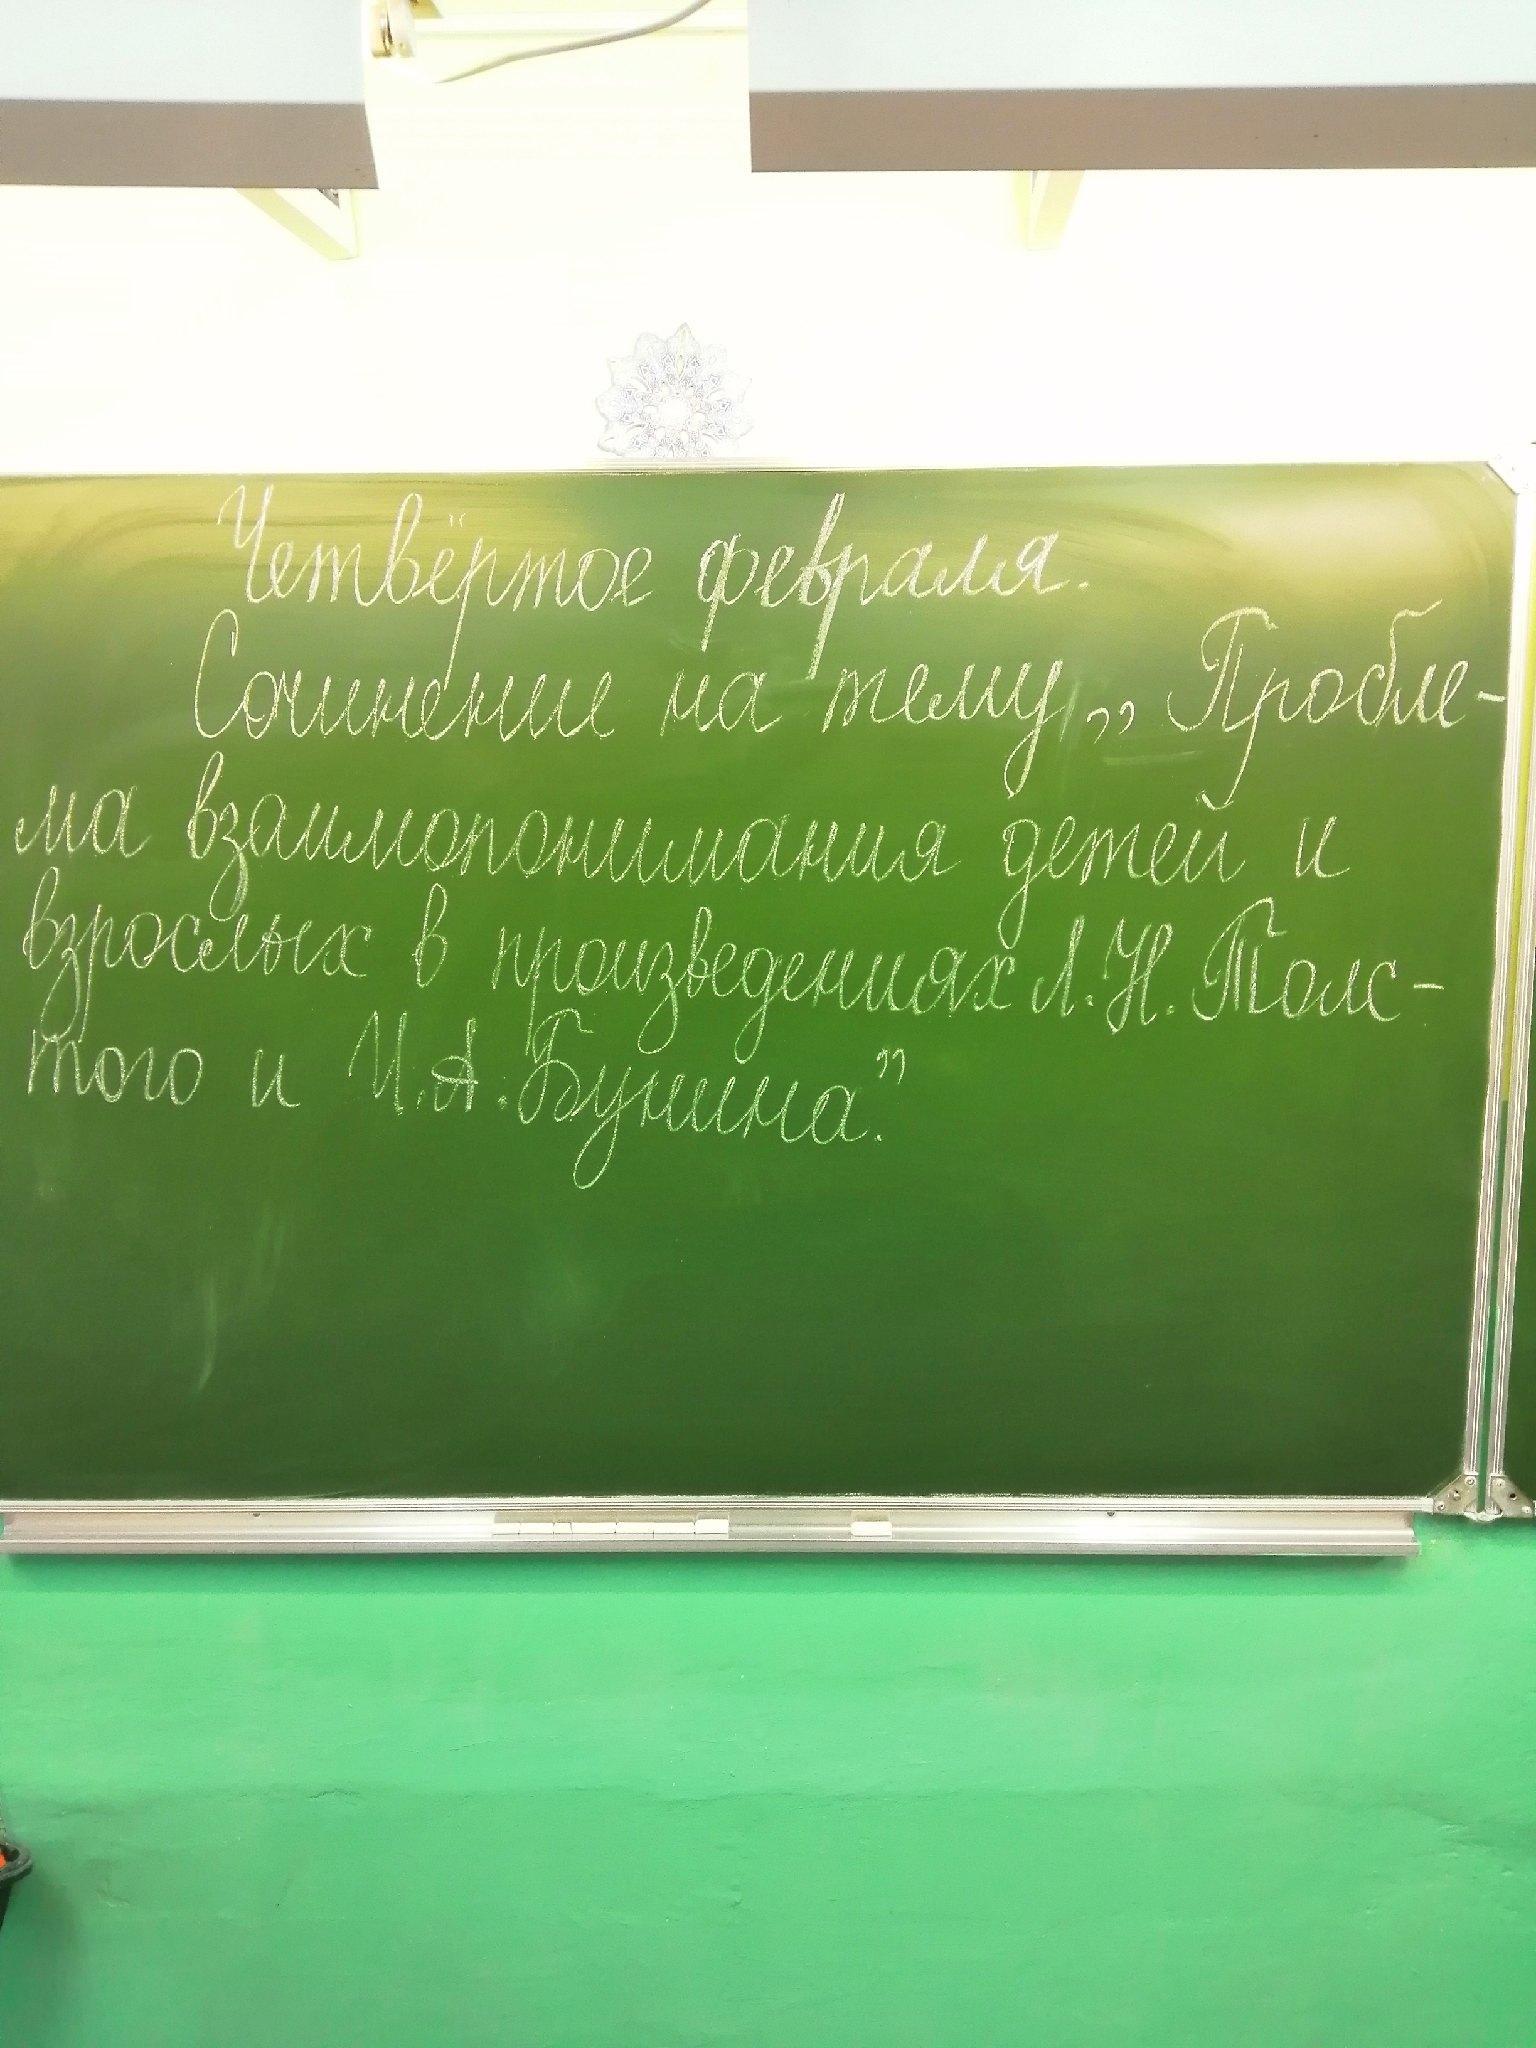 Четвёртое февраля.
Сочинение на тему „Пробле-
ма взаимопонимания детей и
взрослых в произведениях Л.Н.Толс-
того и И.А.Бунина".